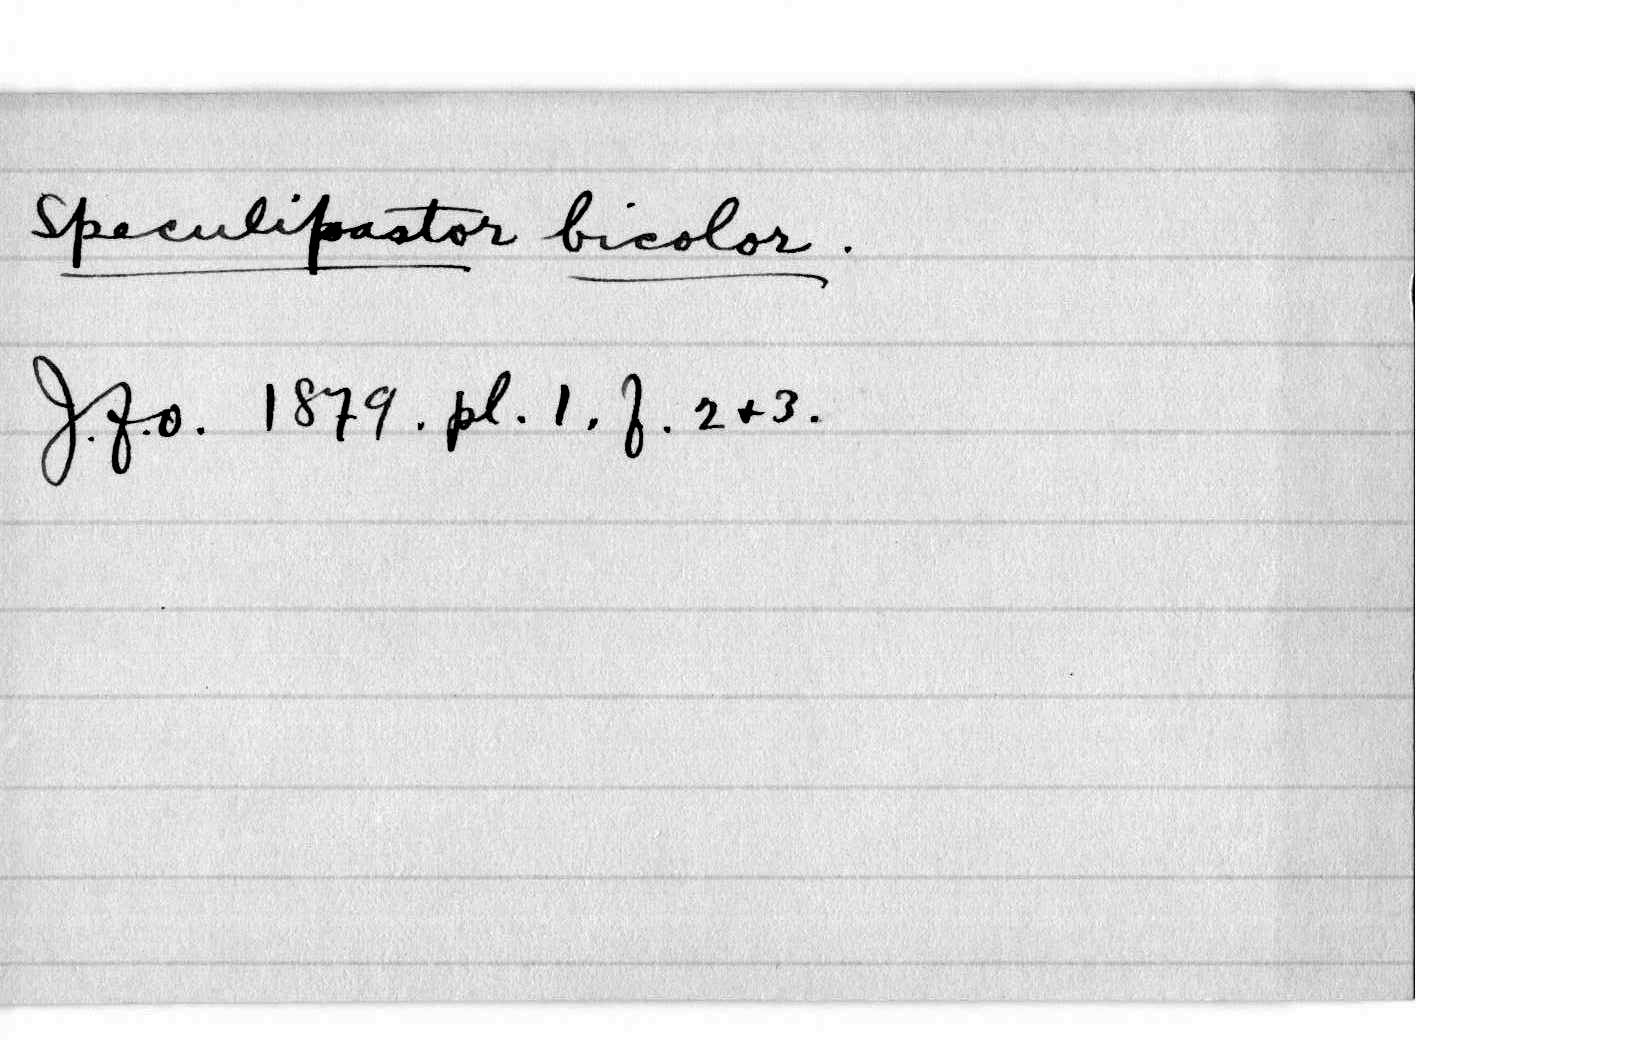 Speculipastor bicolor.
J.f.O. 1879. pl. 1, f. 2+3.